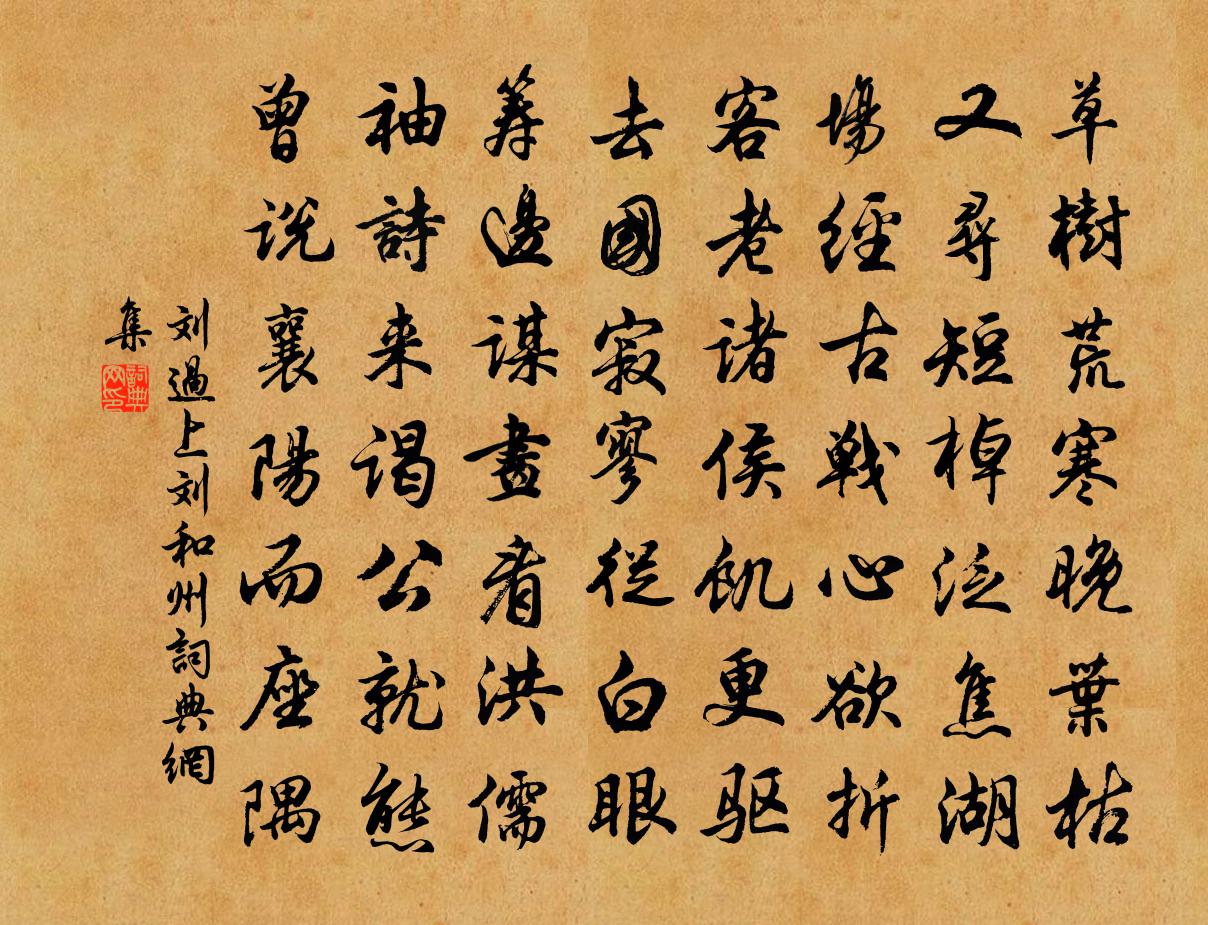 草樹荒寒晚葉枯
又尋短棹泛焦湖
場經古戰心欲折
客老諸侯飢更驅
去國寂寥從白眼
筹邊謀畫看洪儒
袖詩来謁公就熊
曾説襄陽而座隅
刘過上刘和州詞典網
集
詞典網印